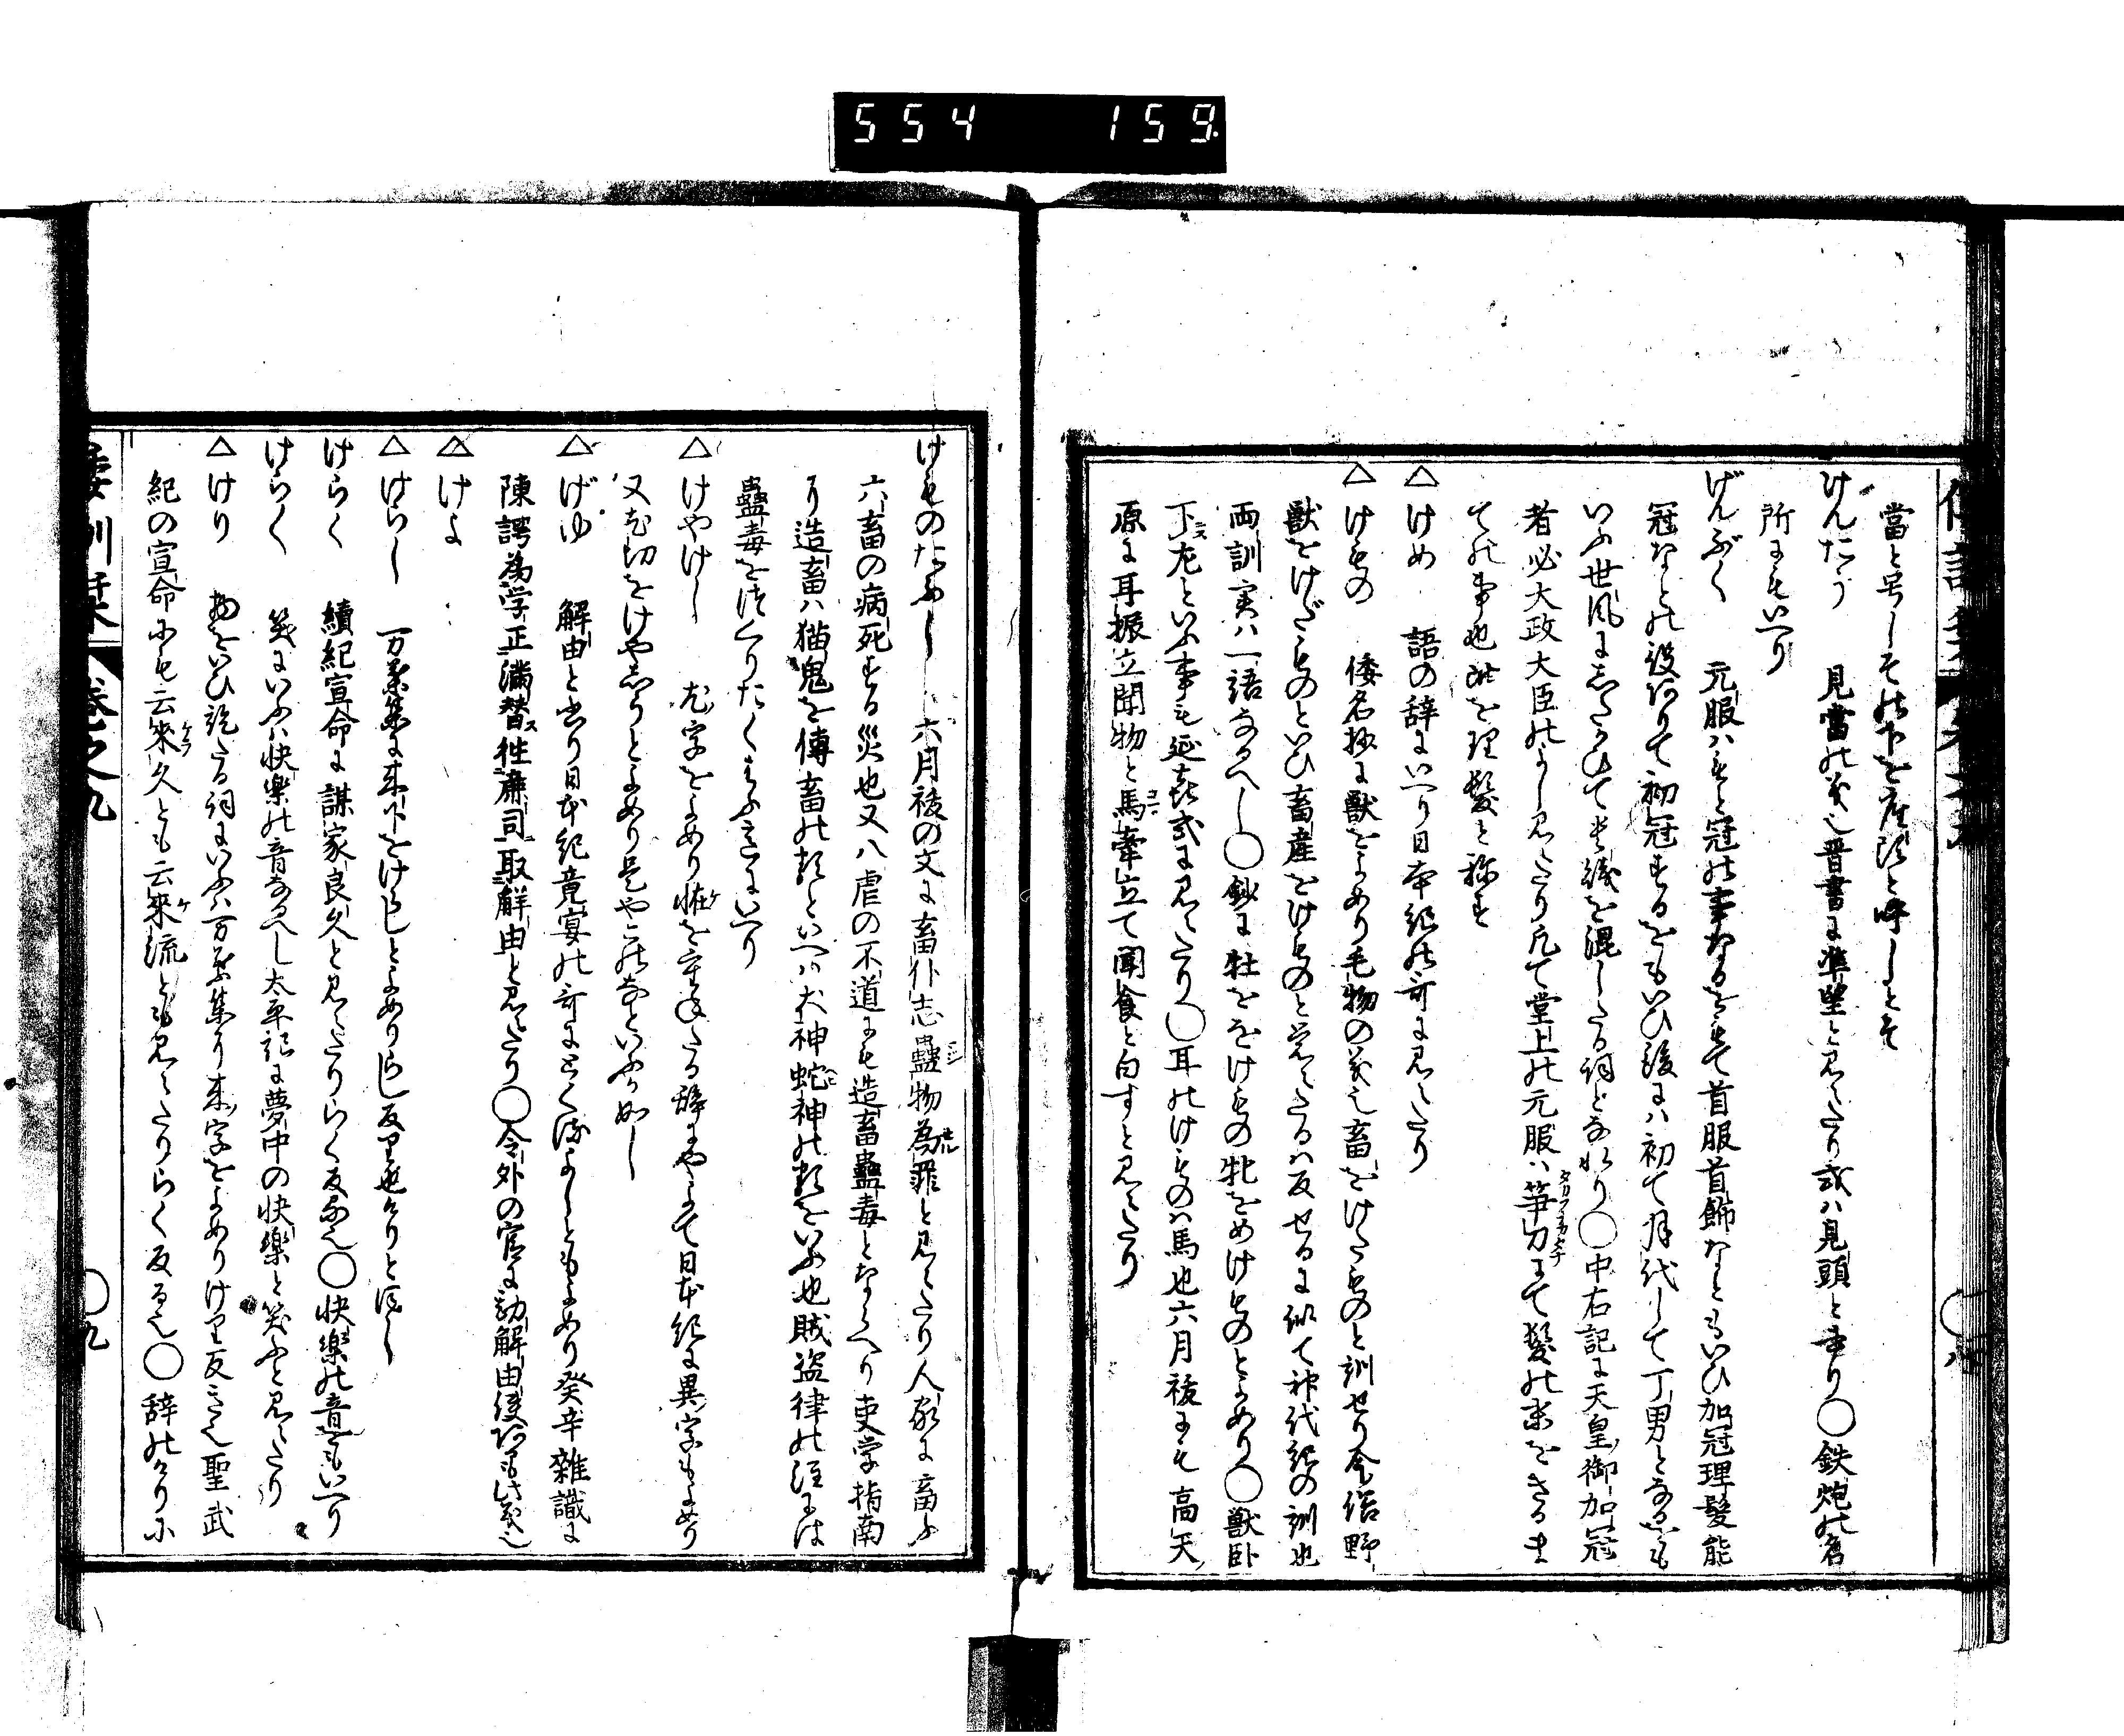 554 159
當と号しその下を座頭と呼しとそ
けんたう 見當の義也晋書に準望と見えたり或ハ見頭と書り○鉄炮の名
所にもいへり
げんぶく 元服ハもと冠の事なるをもて首服首飾なともいひ加冠理髪能
冠なとの設ありて初冠するをもいひ後にハ初て月代して丁男となるにも
いふ世風にしたかひて其儀を混したる詞となれり○中右記に天皇御加冠
者必大政大臣のよし見えたり凡て堂上の元服ハ笄刀にて髪の末をきるま
ての事也此を理髪と称す
△けめ 語の辞にいへり日本紀の哥に見えたり
△けもの 倭名抄に獣をよめり毛物の義也畜をけたものと訓せり今俗野
獣をけだものといひ畜産をけものと覚えたるハ反せるに似て神代紀の訓也
両訓実ハ一語なるへし○鈔に牡ををけもの牝をめけものとよめり○獣臥
下左といふ事も延喜式に見えたり○耳のけものハ馬也六月祓にも高天
原に耳振立聞物と馬牽立て聞食と白すと見えたり
けものたふし 六月祓の文に畜仆志蠱物為罪と見えたり人家に畜ふ
六畜の病死する災也又八虐の不道にも造畜蠱毒とならへり吏学指南
り造畜ハ猫鬼を傳畜の類といへハ犬神蛇神の類をいふ也賊盗律の注には
蠱毒をつくりたくはふるにいへり
△けやけし 尤字をよめり恠を重ねたる辞にや よて日本紀に異字もよめり
又尤切をけやしりとよめり是やこのなといふか如し
△げゆ 解由と書り日本紀竟宴の哥にとくるよしともよめり癸辛雑識に
陳諤為学正満替徃齋司取解由と見えたり○令外の官に勘解由使あるも此義也
△けよ
△けらし 万葉集に来下をけらしとよめりらし反り也けりと同し
けらく 續紀宣命に謀家良久と見えたりらく反る也○快樂の音もいへり
けらく 笑にいふハ快樂の音なるへし太平記に夢中の快樂と笑ふと見えたり
△けり 物をいひ訖たる詞にいふハ万葉集り来字をよめりけり反き也聖武
紀の宣命にも云來久とも云來流とも見えたりらく反る也○辞のけりに
倭訓栞 巻之九 ○九